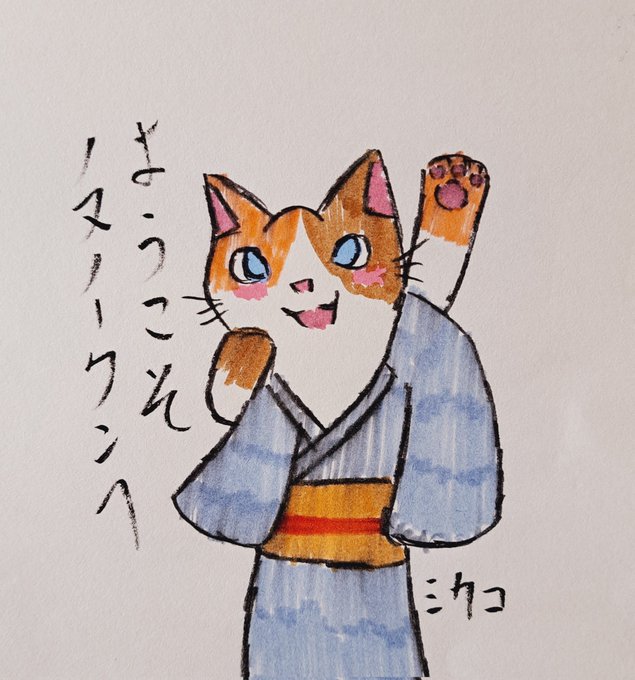 ようこそ
ノスノークンへ
ミケコ